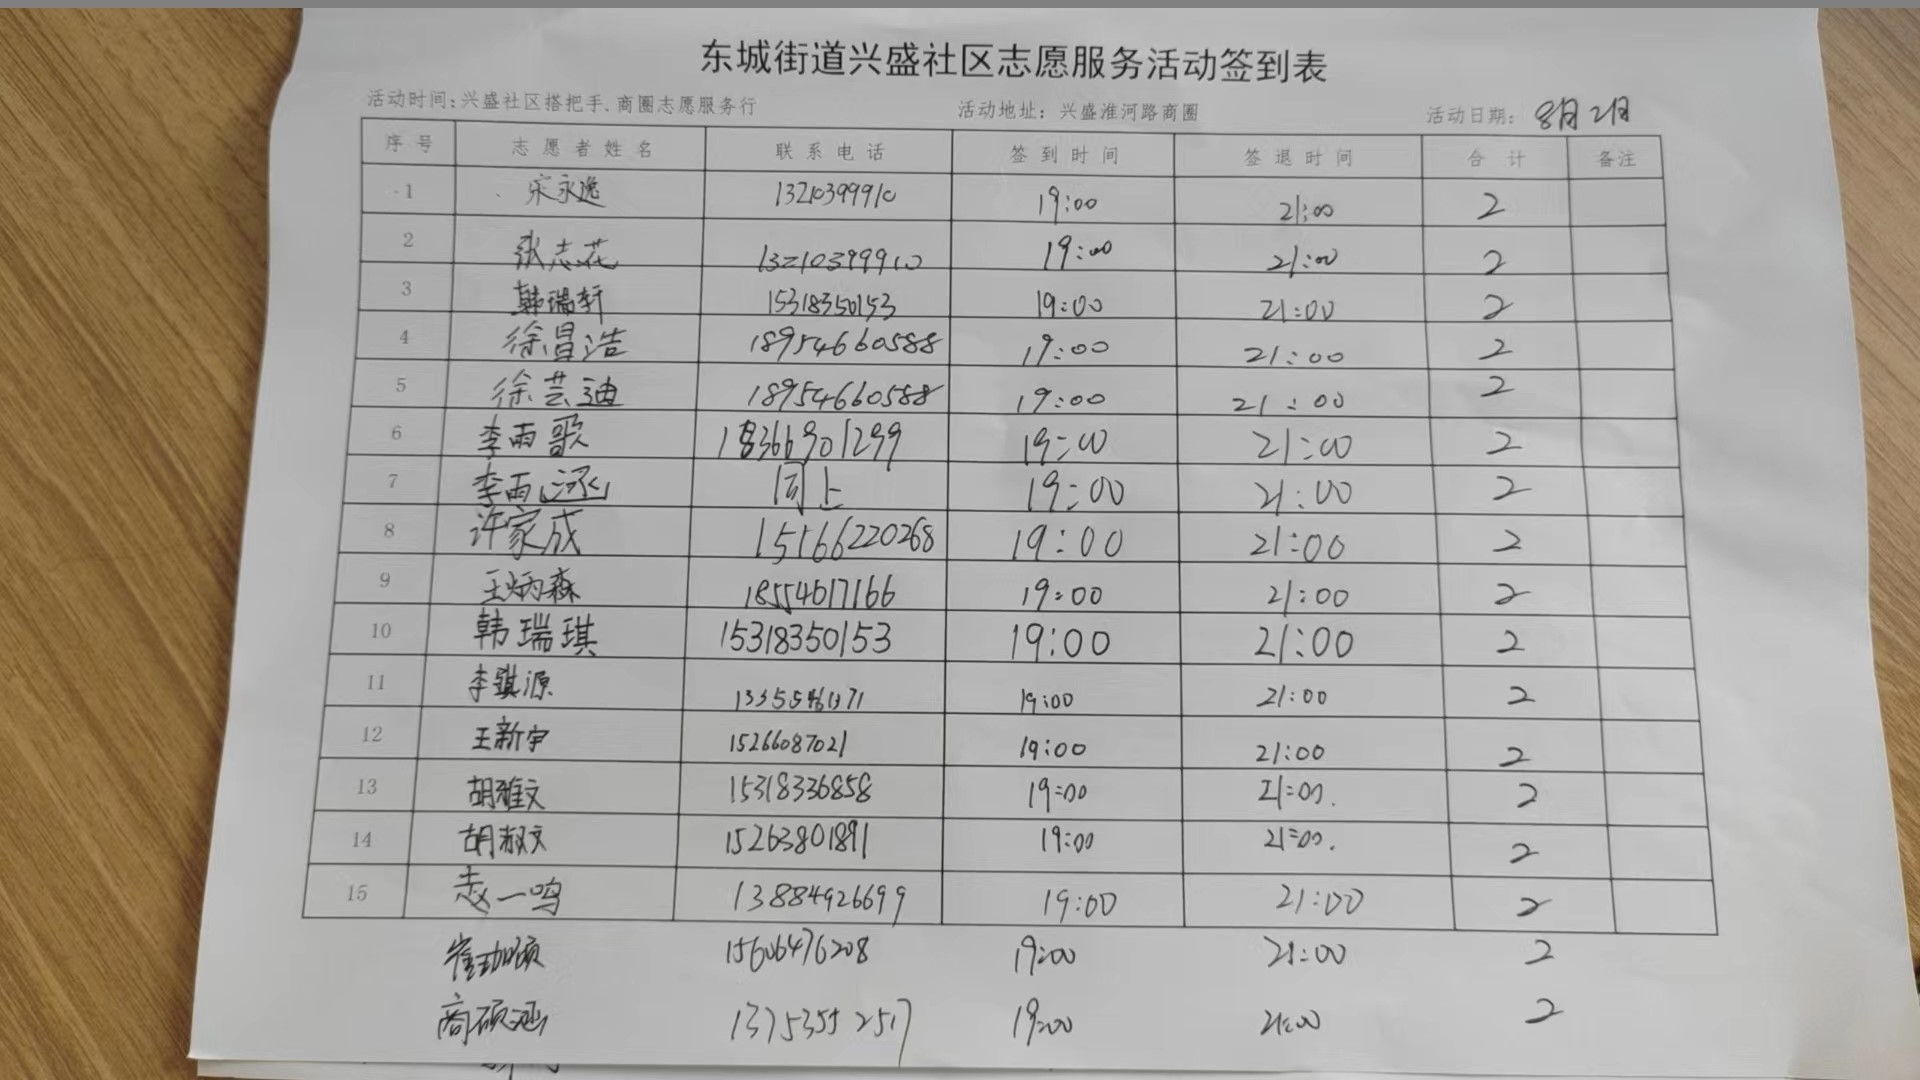 东城街道兴盛社区志愿服务活动签到表
活动时间:兴盛社区搭把手、商圈志愿服务行 活动地址：兴盛淮河路商圈 活动日期：8月2日
序号 志愿者姓名 联系电话 签到时间 签退时间 合计 备注
1 宋永逸 13210399910 19:00 21:00 2
2 张志花 13210399910 19:00 21:00 2
3 韩瑞轩 15318350153 19:00 21:00 2
4 徐昌浩 18954660588 19:00 21:00 2
5 徐芸迪 18954660588 19:00 21:00 2
6 李雨歌 18366901299 19:00 21:00 2
7 李雨 同上 19:00 21:00 2
8 许家成 15166220268 19:00 21:00 2
9 王炳森 18554617166 19:00 21:00 2
10 韩瑞琪 15318350153 19:00 21:00 2
11 李骐源 19:00 21:00 2
12 王新宇 15266087021 19:00 21:00 2
13 胡雅文 15318336858 19:00 21:00. 2
14 胡淑文 15263801891 19:00 21:00. 2
15 赵一鸣 13884926699 19:00 21:00 2
崔 15606476208 19:00 21:00 2
商硕涵 13753552517 19:00 21:00 2